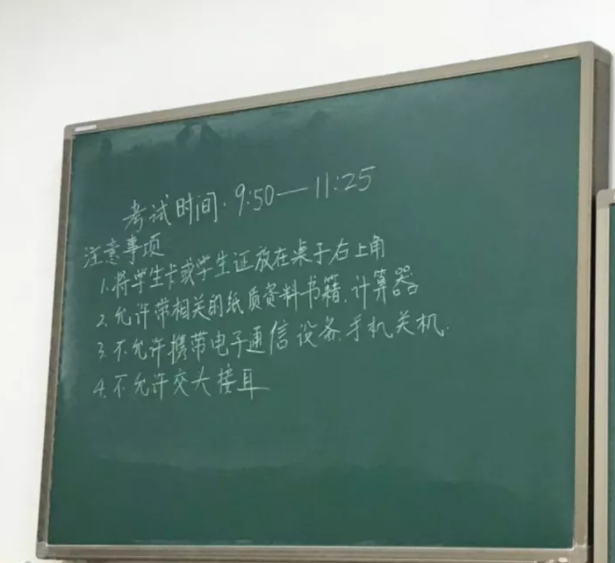 考试时间:9:50—11:25
注意事项
1.将学生卡或学生证放在桌子右上角
2.允许带相关的纸质资料书籍.计算器
3.不允许携带电子通信设备.手机关机.
4.不允许交大接耳